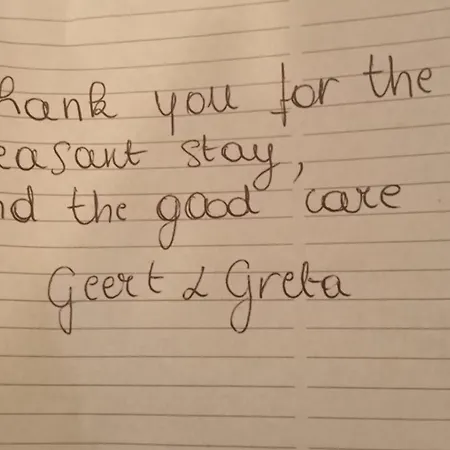 hank you for the
easant stay,
nd the good care
Geert & Greta